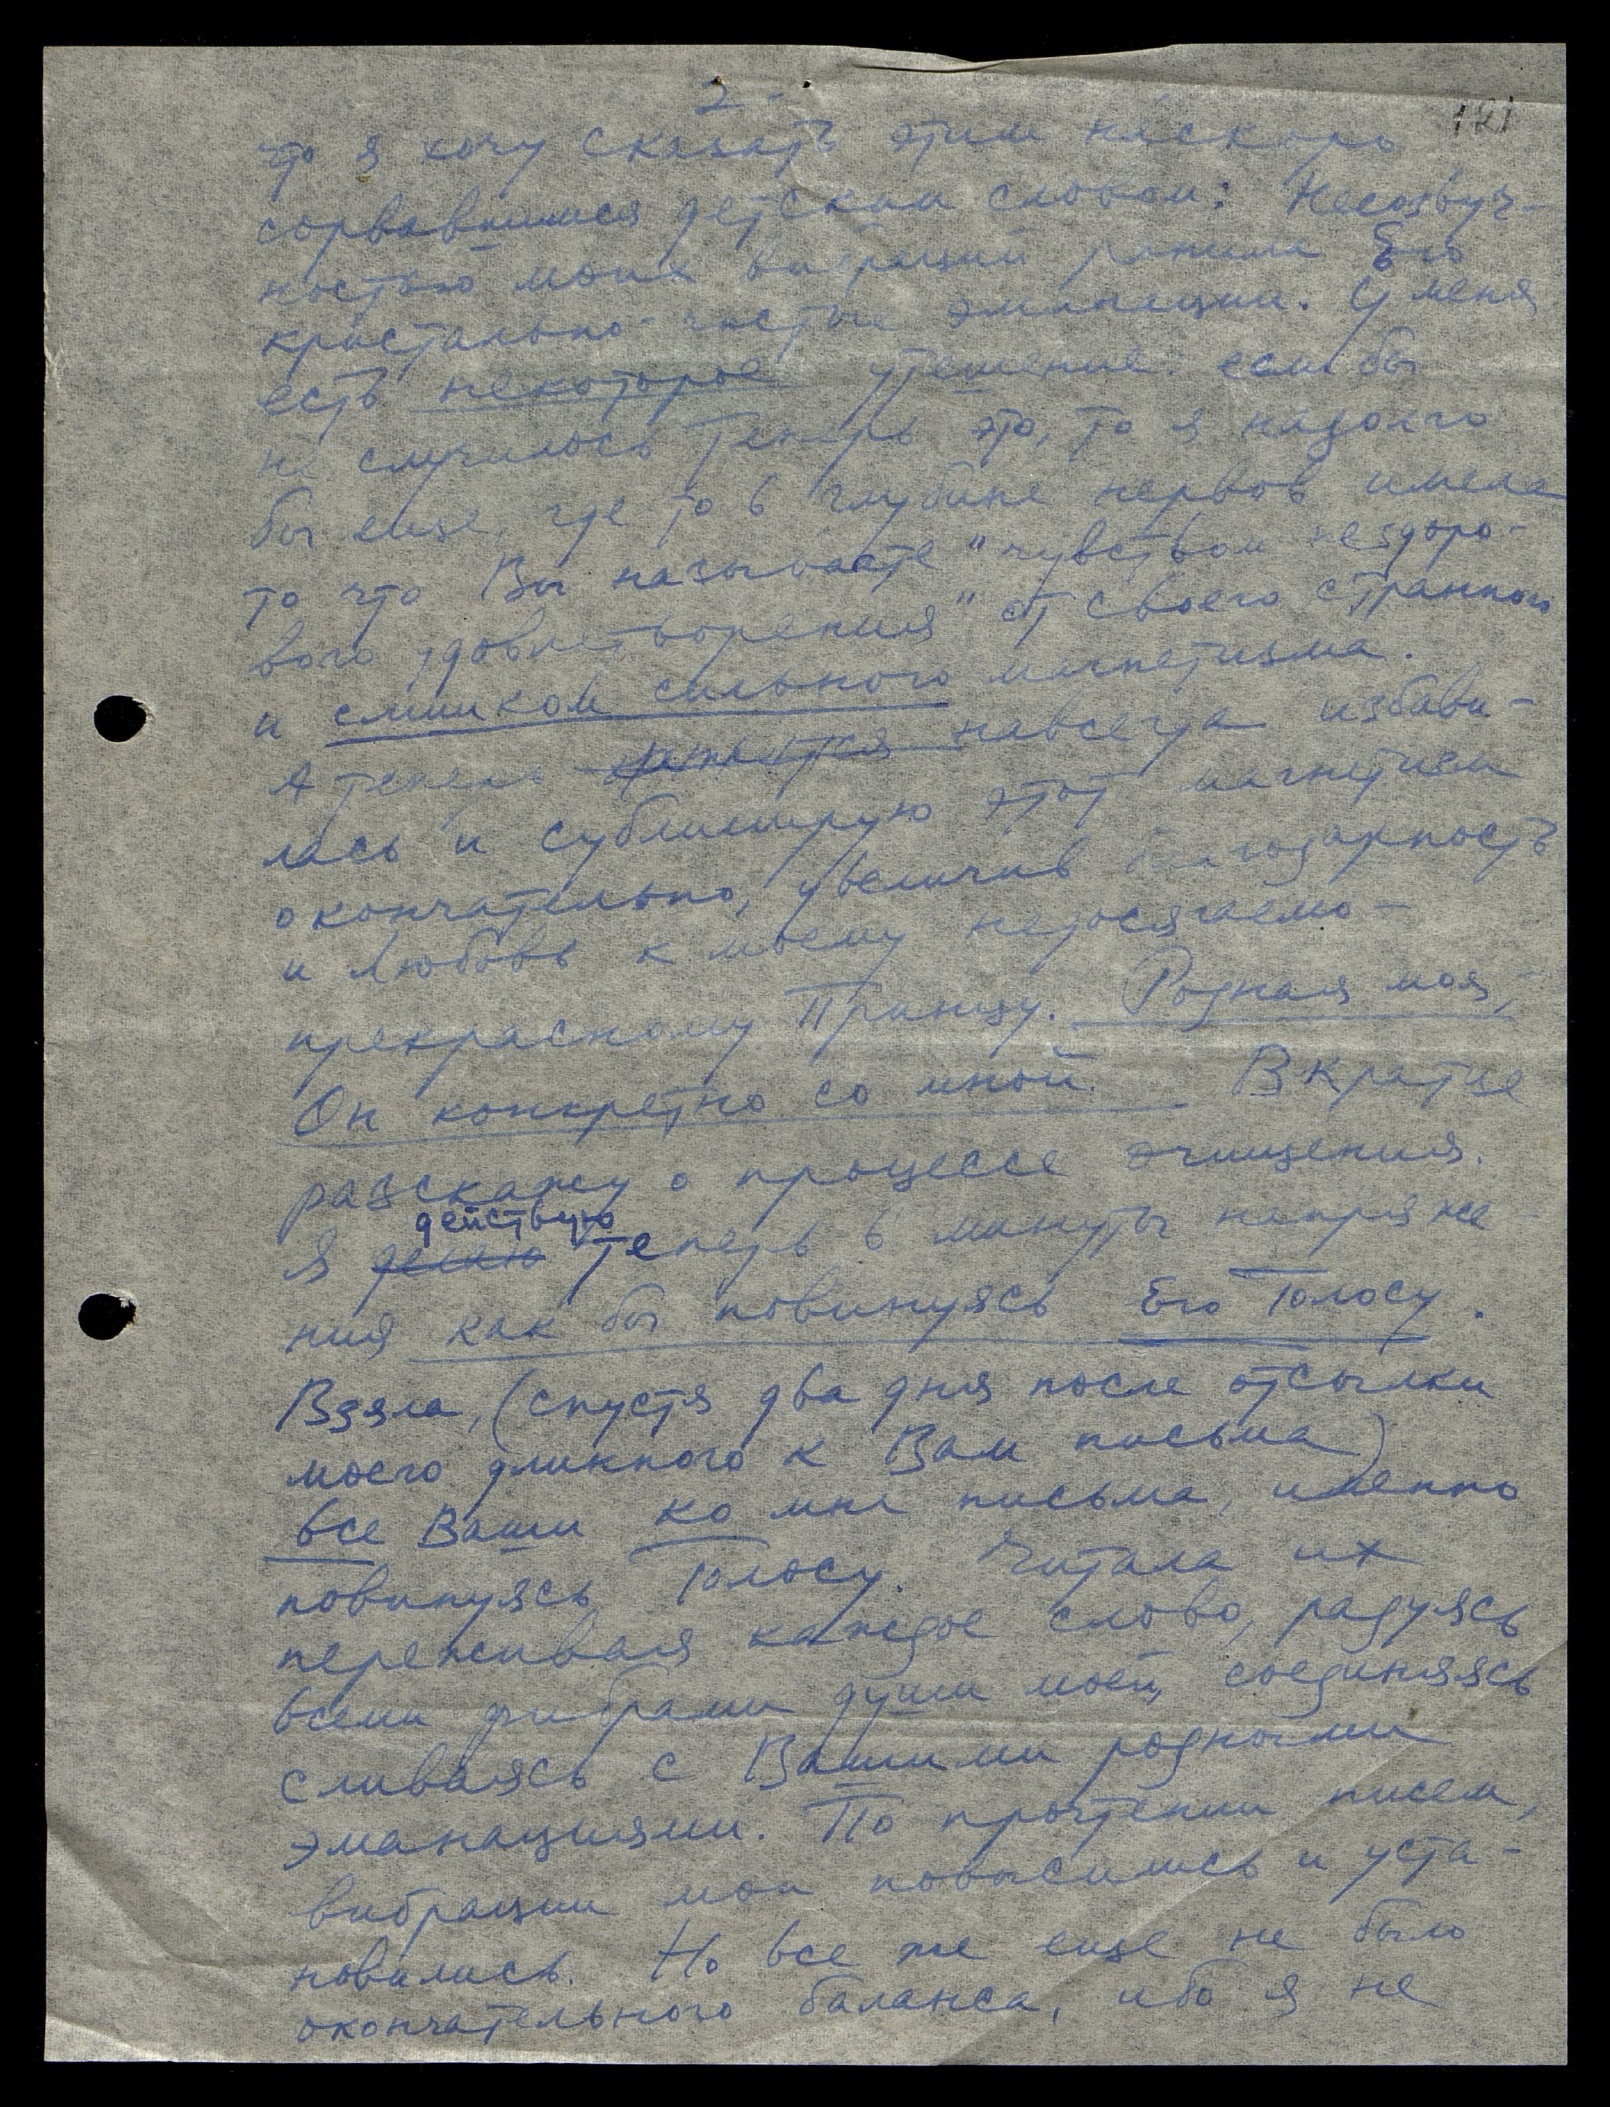 2-
121
что я хочу сказать этим наскоро
сорвавшимся детским словом: Несозвуч-
ностью моих вибраций ранила Его
кристально-чистые эманации. У меня
есть некоторое утешение: если бы
не случилось теперь это, то я надолго
бы еще, где то в глубине нервов имела
то что Вы называете "чувством нездоро-
вого удовлетворения" от своего странного
и слишком сильного магнетизма.
А теперь навсегда избави-
лась и сублимирую этот магнетизм
окончательно, увеличив благодарность
и любовь к моему недосягаемо-
прекрасному Принцу. Родная моя,
Он конкретно со мной. Вкратце
разскажу о процессе очищения.
действую
Я делаю теперь в минуты напряже-
ния как бы повинуясь Его Голосу.
Взяла, (спустя два дня после отсылки
моего длинного к Вам письма)
все Ваши ко мне письма, именно
повинуясь Голосу. Читала их
переживая каждое слово, радуясь
всеми фибрами души моей, соединяясь
сливаясь с Вашими родными
эманациями. По прочтении писем,
вибрации мои повысились и уста-
новились. Но все же еще не было
окончательного баланса, ибо я не